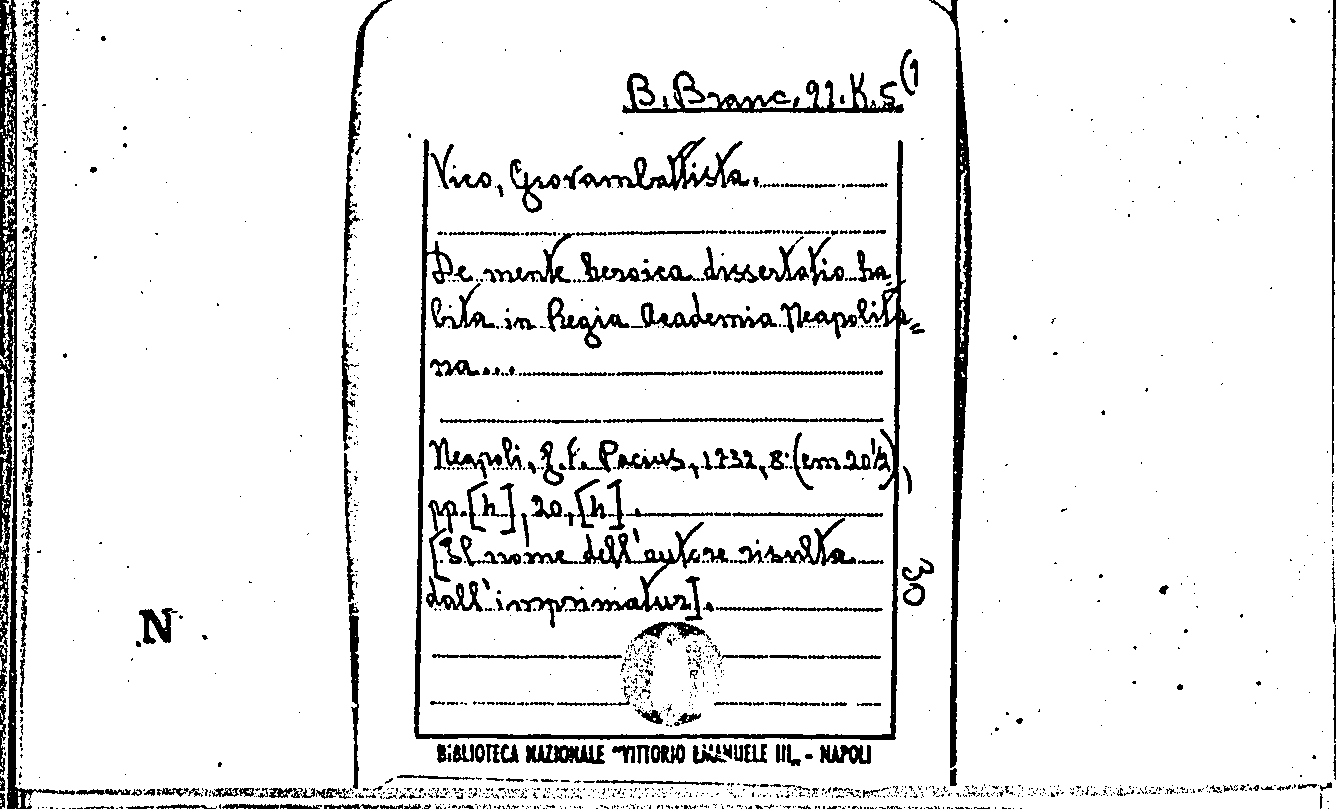 B. Branc. 22. K. 5 (1
Vico, Giovambattista.
De mente heroica dissertatio ha
bita in Regia Academia Neapolita„
na...
Neapoli, J. F. Pacius, 1732, 8° (cm 20½),
pp. [4], 20, [4].
[Il nome dell'autore risulta
dall'imprimatur].
30
N
BIBLIOTECA NAZIONALE "VITTORIO EMANUELE III„ - NAPOLI